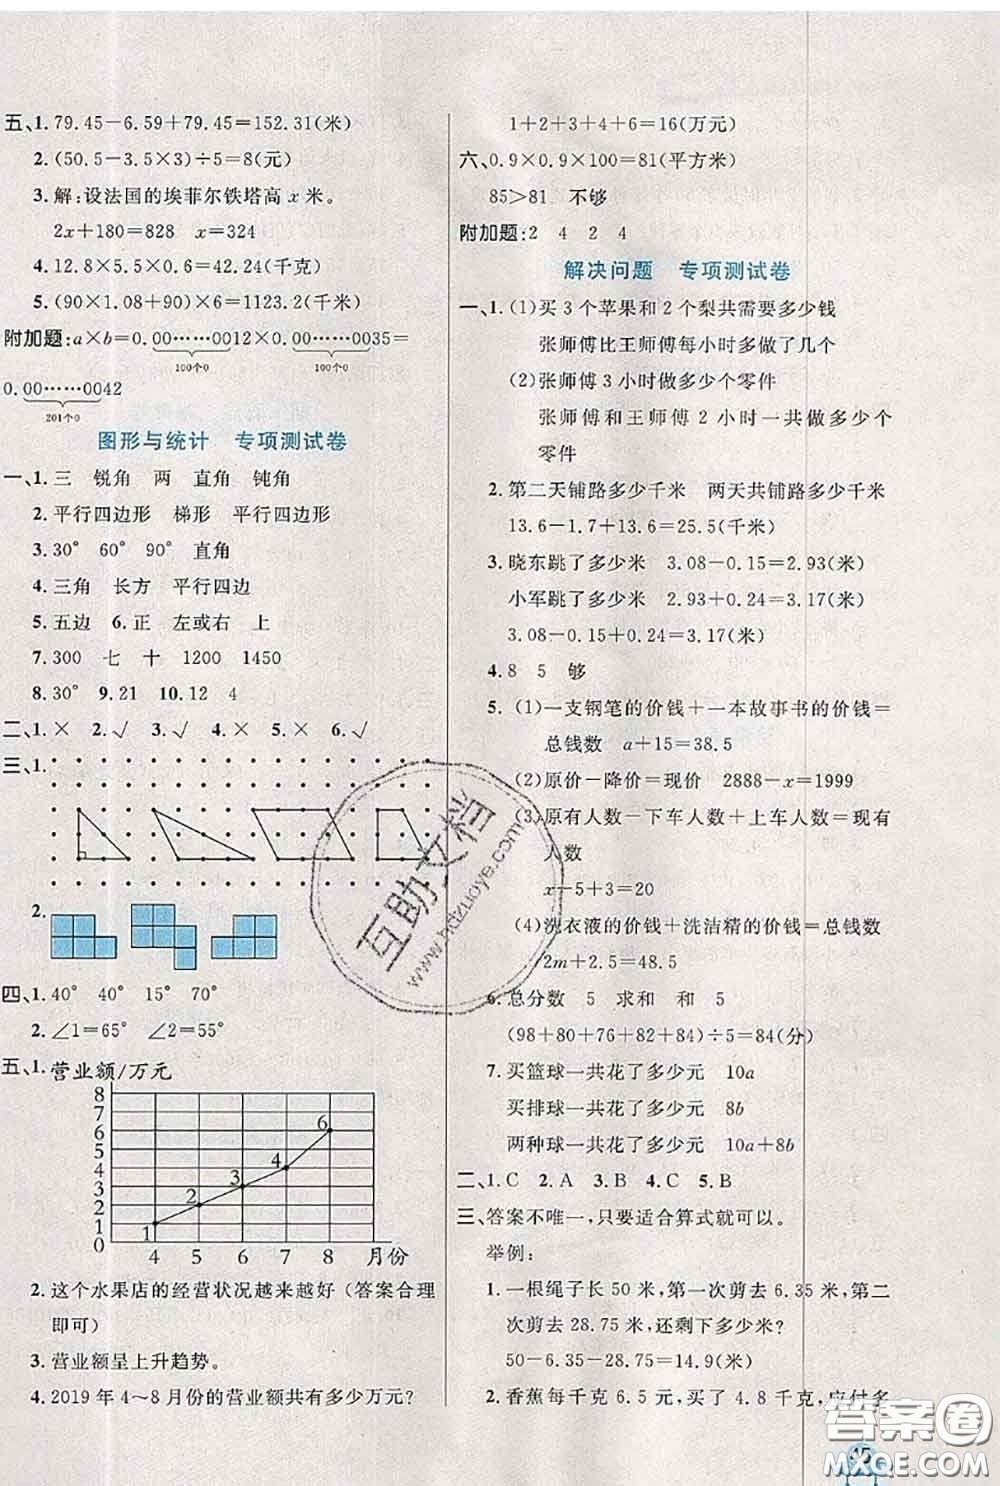 五、1. 79.45－6.59＋79.45＝152.31(米)
2. (50.5－3.5×3)÷5＝8(元)
3. 解:设法国的埃菲尔铁塔高 x 米。
2x＋180＝828　x＝324
4. 12.8×5.5×0.6＝42.24(千克)
5. (90×1.08＋90)×6＝1123.2(千米)
附加题: a×b＝0.00……0012×0.00……0035＝
100个0　100个0
0.00……0042
201个0
图形与统计　专项测试卷
一、1. 三　锐角　两　直角　钝角
2. 平行四边形　梯形　平行四边形
3. 30°　60°　90°　直角
4. 三角　长方　平行四边
5. 五边　6. 正　左或右　上
7. 300　七　十　1200　1450
8. 30°　9. 21　10. 12　4
二、1. ×　2. √　3. √　4. ×　5. ×　6. √
三、1.
2.
四、1. 40°　40°　15°　70°
2. ∠1＝65°　∠2＝55°
五、1. 营业额/万元
8
7
6
5
4
3
2
1
0
1
2
3
4
6
4　5　6　7　8　月份
2. 这个水果店的经营状况越来越好(答案合理
即可)
3. 营业额呈上升趋势。
4. 2019 年 4～8 月份的营业额共有多少万元?
1＋2＋3＋4＋6＝16(万元)
六、0.9×0.9×100＝81(平方米)
85＞81　不够
附加题: 2　4　2　4
解决问题　专项测试卷
一、1. (1)买 3 个苹果和 2 个梨共需要多少钱
张师傅比王师傅每小时多做了几个
(2)张师傅 3 小时做多少个零件
张师傅和王师傅 2 小时一共做多少个
零件
2. 第二天铺路多少千米　两天共铺路多少千米
13.6－1.7＋13.6＝25.5(千米)
3. 晓东跳了多少米　3.08－0.15＝2.93(米)
小军跳了多少米　2.93＋0.24＝3.17(米)
3.08－0.15＋0.24＝3.17(米)
4. 8　5　够
5. (1)一支钢笔的价钱＋一本故事书的价钱＝
总钱数　a＋15＝38.5
(2)原价－降价＝现价　2888－x＝1999
(3)原有人数－下车人数＋上车人数＝现有
人数
x－5＋3＝20
(4)洗衣液的价钱＋洗洁精的价钱＝总钱数
2m＋2.5＝48.5
6. 总分数　5　求和　和　5
(98＋80＋76＋82＋84)÷5＝84(分)
7. 买篮球一共花了多少元　10a
买排球一共花了多少元　8b
两种球一共花了多少元　10a＋8b
二、1. C　2. A　3. B　4. C　5. B
三、答案不唯一,只要适合算式就可以。
举例:
1. 一根绳子长 50 米,第一次剪去 6.35 米,第二
次剪去 28.75 米,还剩下多少米?
50－6.35－28.75＝14.9(米)
2. 香蕉每千克 6.5 元,买了 4.8 千克,应付多
互助文档
www.hdzuoye.com
答案圈
MXQE.COM